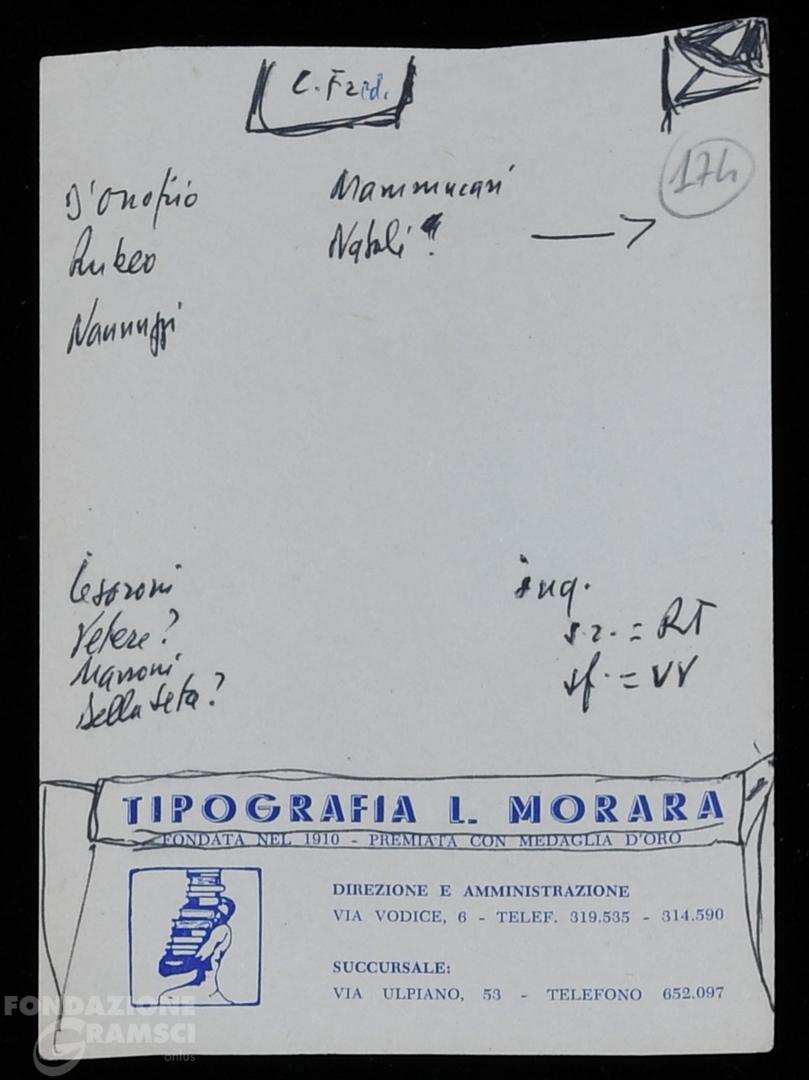 C. Fred.
174
D'Onofrio
Mammucari
Rubeo
Natoli ?
Nannuzzi
Cesaroni
Vetere?
Marroni
Della Seta?
ing.
s.r. = RT
sf. = VV
TIPOGRAFIA L. MORARA
FONDATA NEL 1910 - PREMIATA CON MEDAGLIA D'ORO
DIREZIONE E AMMINISTRAZIONE
VIA VODICE, 6 - TELEF. 319.535 - 314.590
SUCCURSALE:
VIA ULPIANO, 53 - TELEFONO 652.097
FONDAZIONE
GRAMSCI
onlus